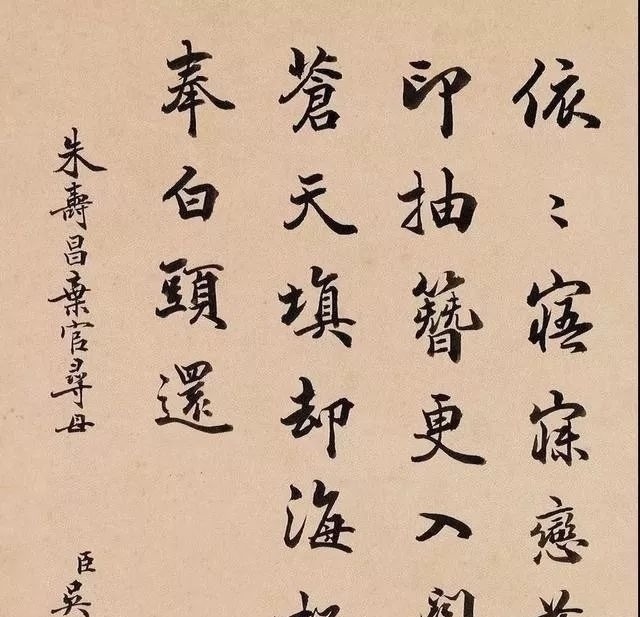 依〻寤寐戀
印抽簪更入
蒼天填却海
奉白頭還
朱壽昌棄官尋母
臣吳